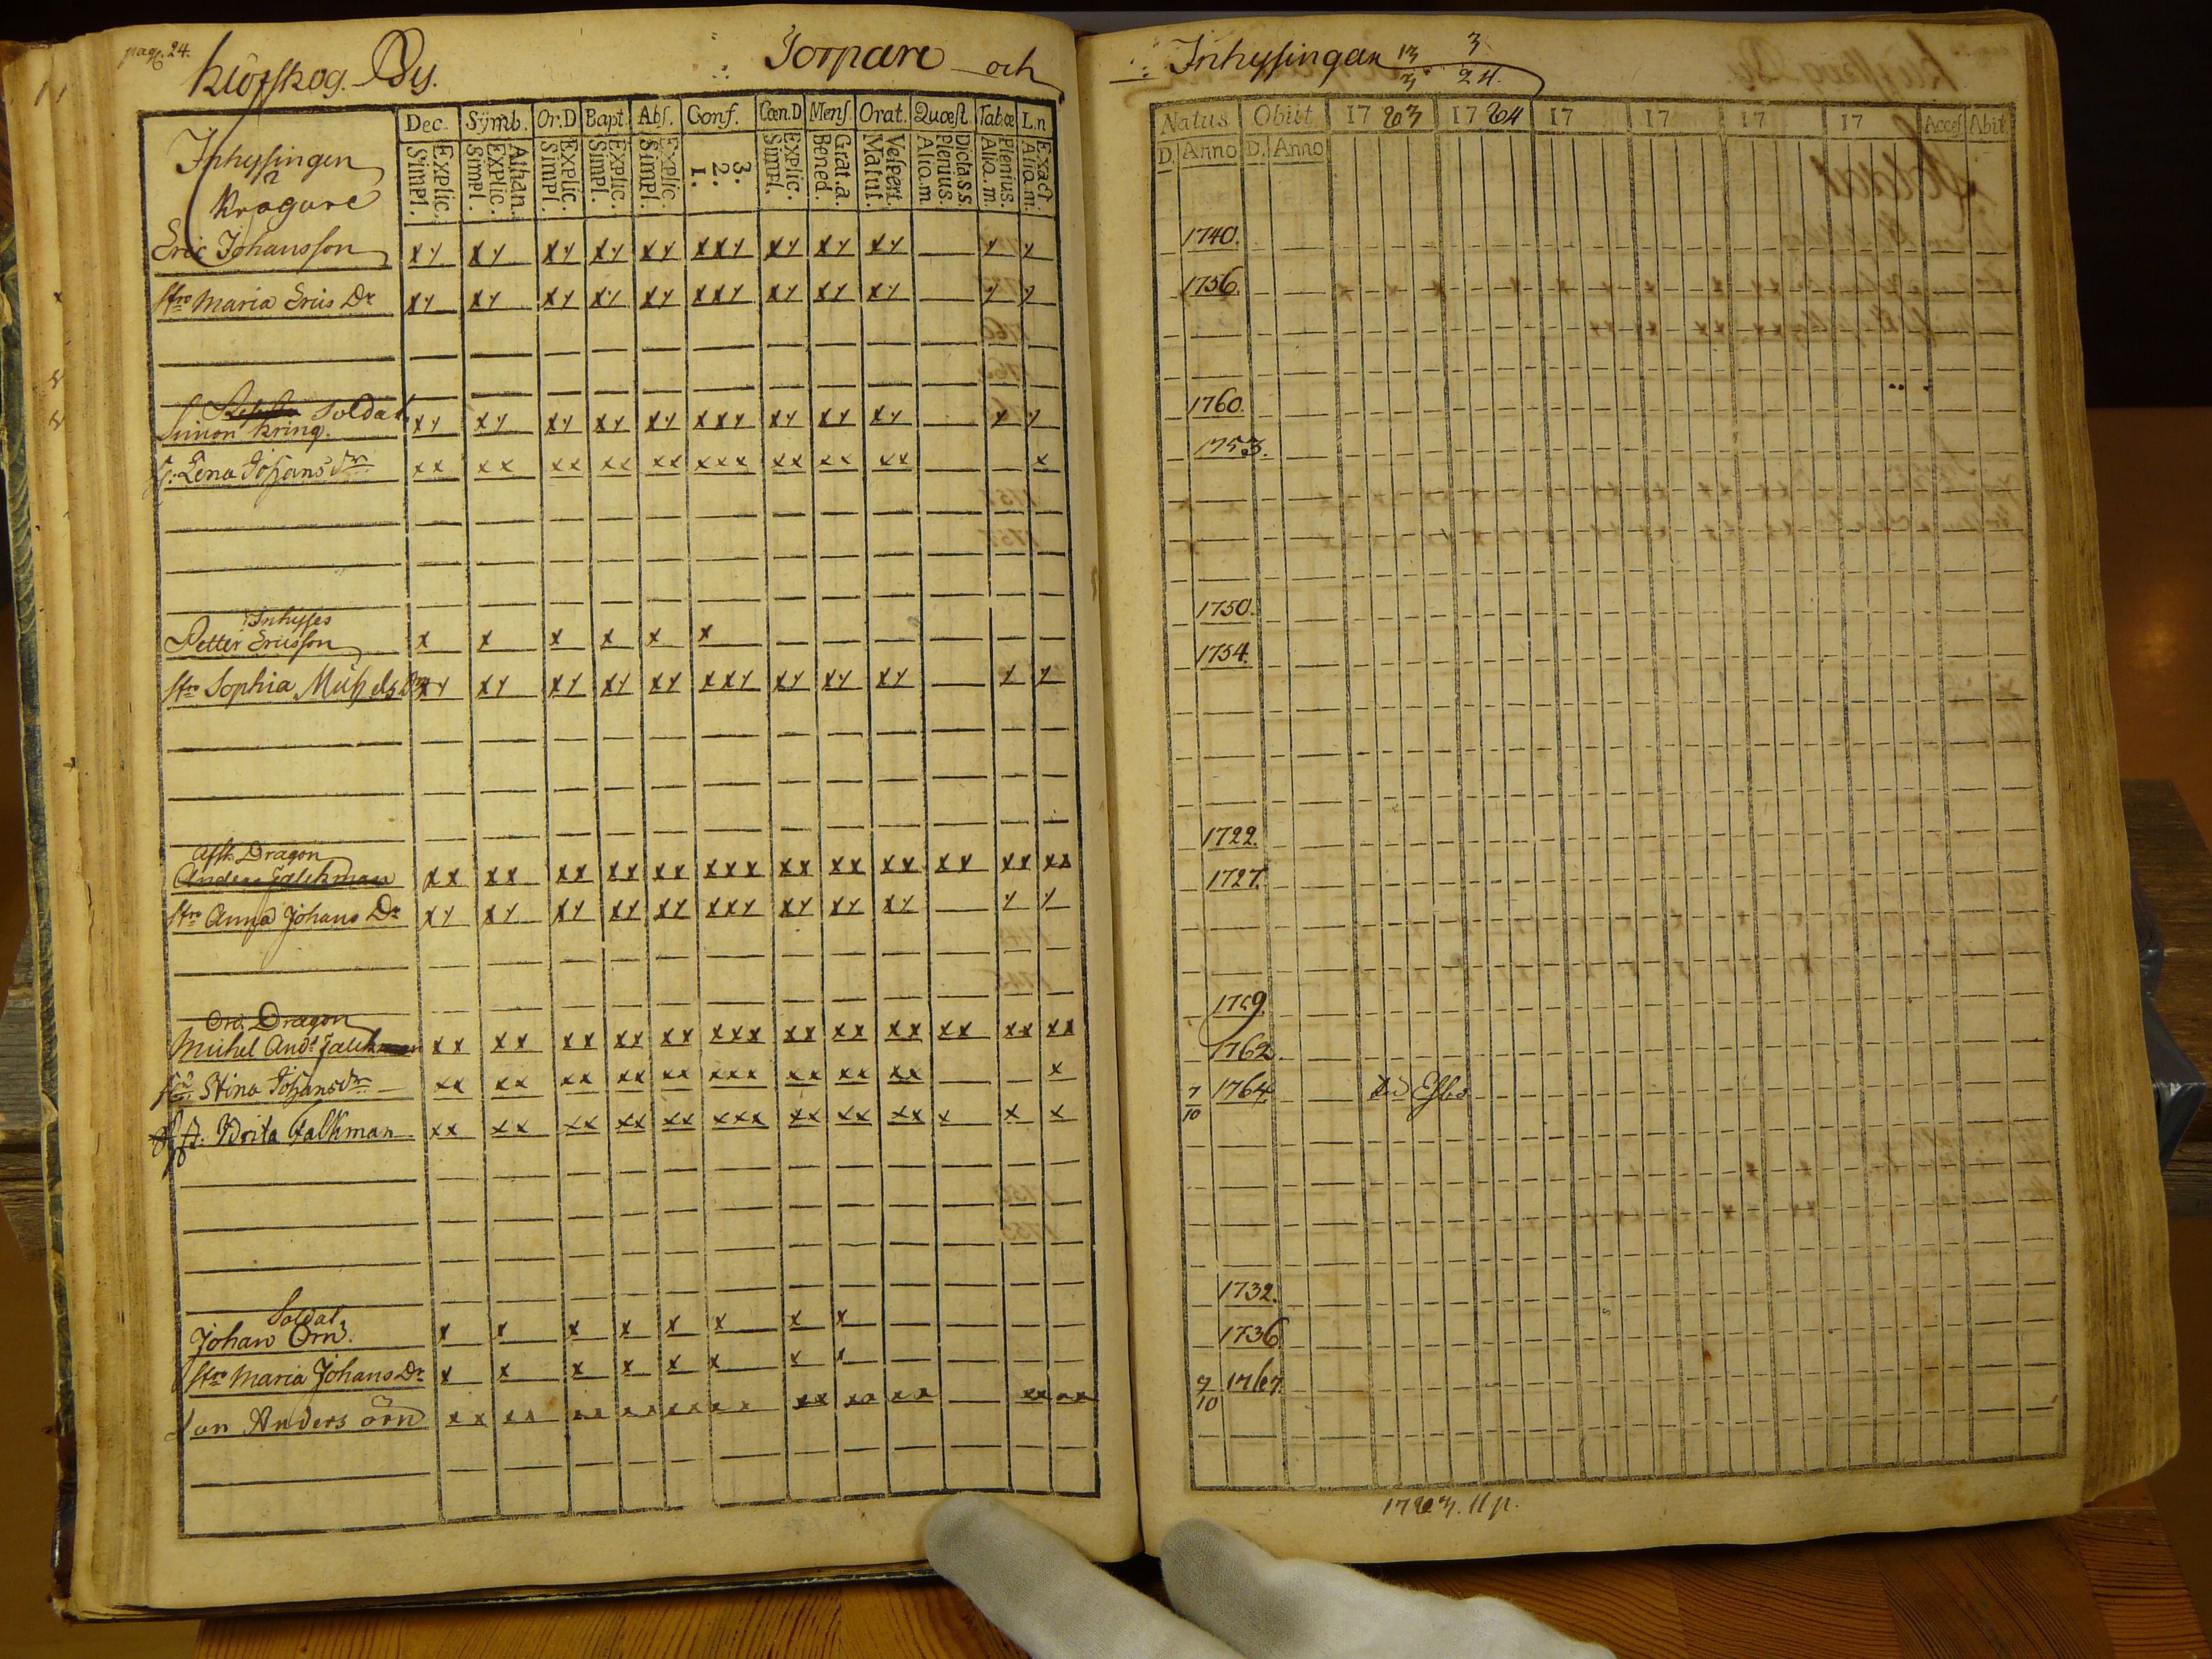 pag. 24.
Klöfskog. By. Torpare och
Inhysingar 13/3 3/24.
Dec. Symb. Or.D Bapt. Abs. Conf. Cœn.D Mens. Orat. Quœst Tab.œ L.n
Explic. Simpl. Athan. Explic. Simpl. Explic. Simpl. Explic. Simpl. Explic. Simpl. 3. 2. 1. Explic. Simpl. Grat.a. Bened. Vespert. Matut. Dicta s.s. Plenius. Alio.m. Plenius. Alio.m. Exact. Alio.m.
Natus Obiit 17 83 17 84 17 17 17 17 Acces Abit
D. Anno D. Anno
Inhysingen
Eric Johansson x y x y x y x y x y x x y x y x y x y y y 1740.
Maria Erics Dr x y x y x y x y x y x x y x y x y x y y y 1756.
Soldat
Simon Kring. x y x y x y x y x y x x y x y x y x y y y 1760.
Lena Johans dr x x x x x x x x x x x x x x x x x x x x 1753.
Inhyses
Petter Ericsson x x x x x x 1750.
Sophia x y x y x y x y x y x x y x y x y x y y y 1754.
Afsk. Dragon
Anders Falckman x x x x x x x x x x x x x x x x x x x x x x x x x x 1722.
Anna Johans Dr x y x y x y x y x y x x y x y x y x y y y 1727.
Dragon
Michel And. x x x x x x x x x x x x x x x x x x x x x x x x x
Stina Johans dr x x x x x x x x x x x x x x x x x x x x 1762.
Brita Falkman x x x x x x x x x x x x x x x x x x x x x x 7/10 1764
Soldat
Johan Örn. x x x x x x x x 1732.
Maria Johans Dr x x x x x x x x 1736
son Anders örn x x x x x x x x x x x x x x x x x x x x x x 7/10 1767.